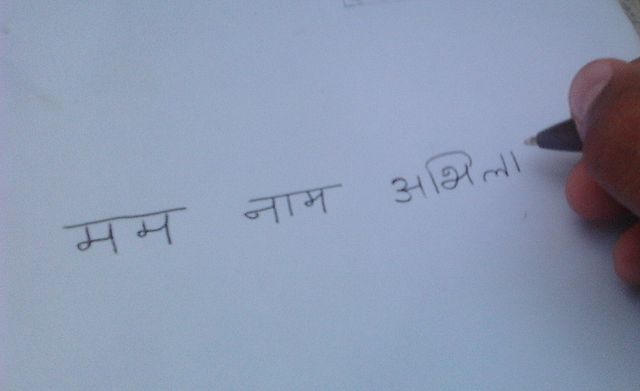 मम नाम अभिला